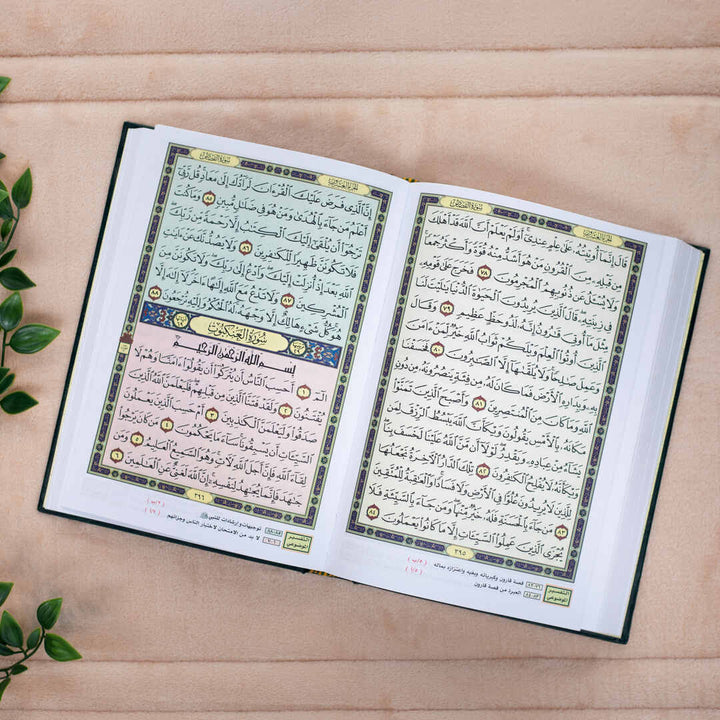 الجزء العشرون سورة القصص
قَالَ إِنَّمَآ أُوتِيتُهُۥ عَلَىٰ عِلْمٍ عِندِيٓۚ أَوَلَمْ يَعْلَمْ أَنَّ ٱللَّهَ قَدْ أَهْلَكَ
مِن قَبْلِهِۦ مِنَ ٱلْقُرُونِ مَنْ هُوَ أَشَدُّ مِنْهُ قُوَّةً وَأَكْثَرُ جَمْعًاۚ
وَلَا يُسْـَٔلُ عَن ذُنُوبِهِمُ ٱلْمُجْرِمُونَ ٧٨ فَخَرَجَ عَلَىٰ قَوْمِهِۦ
فِي زِينَتِهِۦۖ قَالَ ٱلَّذِينَ يُرِيدُونَ ٱلْحَيَوٰةَ ٱلدُّنْيَا يَٰلَيْتَ لَنَا
مِثْلَ مَآ أُوتِيَ قَٰرُونُ إِنَّهُۥ لَذُو حَظٍّ عَظِيمٍ ٧٩ وَقَالَ
ٱلَّذِينَ أُوتُوا۟ ٱلْعِلْمَ وَيْلَكُمْ ثَوَابُ ٱللَّهِ خَيْرٌ لِّمَنْ ءَامَنَ
وَعَمِلَ صَٰلِحًاۚ وَلَا يُلَقَّىٰهَآ إِلَّا ٱلصَّٰبِرُونَ ٨٠ فَخَسَفْنَا
بِهِۦ وَبِدَارِهِ ٱلْأَرْضَ فَمَا كَانَ لَهُۥ مِن فِئَةٍ يَنصُرُونَهُۥ مِن دُونِ
ٱللَّهِ وَمَا كَانَ مِنَ ٱلْمُنتَصِرِينَ ٨١ وَأَصْبَحَ ٱلَّذِينَ تَمَنَّوْا۟
مَكَانَهُۥ بِٱلْأَمْسِ يَقُولُونَ وَيْكَأَنَّ ٱللَّهَ يَبْسُطُ ٱلرِّزْقَ لِمَن
يَشَآءُ مِنْ عِبَادِهِۦ وَيَقْدِرُۖ لَوْلَآ أَن مَّنَّ ٱللَّهُ عَلَيْنَا لَخَسَفَ بِنَاۖ
وَيْكَأَنَّهُۥ لَا يُفْلِحُ ٱلْكَٰفِرُونَ ٨٢ تِلْكَ ٱلدَّارُ ٱلْءَاخِرَةُ نَجْعَلُهَا
لِلَّذِينَ لَا يُرِيدُونَ عُلُوًّا فِي ٱلْأَرْضِ وَلَا فَسَادًاۚ وَٱلْعَٰقِبَةُ لِلْمُتَّقِينَ
٨٣ مَن جَآءَ بِٱلْحَسَنَةِ فَلَهُۥ خَيْرٌ مِّنْهَاۖ وَمَن جَآءَ بِٱلسَّيِّئَةِ فَلَا
يُجْزَى ٱلَّذِينَ عَمِلُوا۟ ٱلسَّيِّـَٔاتِ إِلَّا مَا كَانُوا۟ يَعْمَلُونَ ٨٤
٣٩٥
التفسير الموضوعي
٧٦-٨٢ قصة قارون وكبريائه وبغيه واعتزازه بماله
٨٣-٨٤ العبرة من قصة قارون
الجزء العشرون سورة القصص
إِنَّ ٱلَّذِي فَرَضَ عَلَيْكَ ٱلْقُرْءَانَ لَرَآدُّكَ إِلَىٰ مَعَادٍۚ قُل رَّبِّيٓ
أَعْلَمُ مَن جَآءَ بِٱلْهُدَىٰ وَمَنْ هُوَ فِي ضَلَٰلٍ مُّبِينٍ ٨٥ وَمَا كُنتَ
تَرْجُوٓا۟ أَن يُلْقَىٰٓ إِلَيْكَ ٱلْكِتَٰبُ إِلَّا رَحْمَةً مِّن رَّبِّكَۖ
فَلَا تَكُونَنَّ ظَهِيرًا لِّلْكَٰفِرِينَ ٨٦ وَلَا يَصُدُّنَّكَ عَنْ ءَايَٰتِ
ٱللَّهِ بَعْدَ إِذْ أُنزِلَتْ إِلَيْكَۖ وَٱدْعُ إِلَىٰ رَبِّكَۖ وَلَا تَكُونَنَّ مِنَ
ٱلْمُشْرِكِينَ ٨٧ وَلَا تَدْعُ مَعَ ٱللَّهِ إِلَٰهًا ءَاخَرَۘ لَآ إِلَٰهَ إِلَّا
هُوَۚ كُلُّ شَيْءٍ هَالِكٌ إِلَّا وَجْهَهُۥۚ لَهُ ٱلْحُكْمُ وَإِلَيْهِ تُرْجَعُونَ ٨٨
سُورَةُ العَنكَبُوتِ
بِسْمِ ٱللَّهِ ٱلرَّحْمَٰنِ ٱلرَّحِيمِ
الٓمٓ ١ أَحَسِبَ ٱلنَّاسُ أَن يُتْرَكُوٓا۟ أَن يَقُولُوٓا۟ ءَامَنَّا وَهُمْ لَا
يُفْتَنُونَ ٢ وَلَقَدْ فَتَنَّا ٱلَّذِينَ مِن قَبْلِهِمْۖ فَلَيَعْلَمَنَّ ٱللَّهُ ٱلَّذِينَ
صَدَقُوا۟ وَلَيَعْلَمَنَّ ٱلْكَٰذِبِينَ ٣ أَمْ حَسِبَ ٱلَّذِينَ يَعْمَلُونَ
ٱلسَّيِّـَٔاتِ أَن يَسْبِقُونَاۚ سَآءَ مَا يَحْكُمُونَ ٤ مَن كَانَ يَرْجُوا۟
لِقَآءَ ٱللَّهِ فَإِنَّ أَجَلَ ٱللَّهِ لَءَاتٍۚ وَهُوَ ٱلسَّمِيعُ ٱلْعَلِيمُ ٥ وَمَن
جَٰهَدَ فَإِنَّمَا يُجَٰهِدُ لِنَفْسِهِۦٓۚ إِنَّ ٱللَّهَ لَغَنِيٌّ عَنِ ٱلْعَٰلَمِينَ ٦
٣٩٦
التفسير الموضوعي
٨٥-٨٨ توجيهات وإرشادات للنبي ﷺ
١-٧ لا بد من الامتحان لاختبار الناس وجزائهم